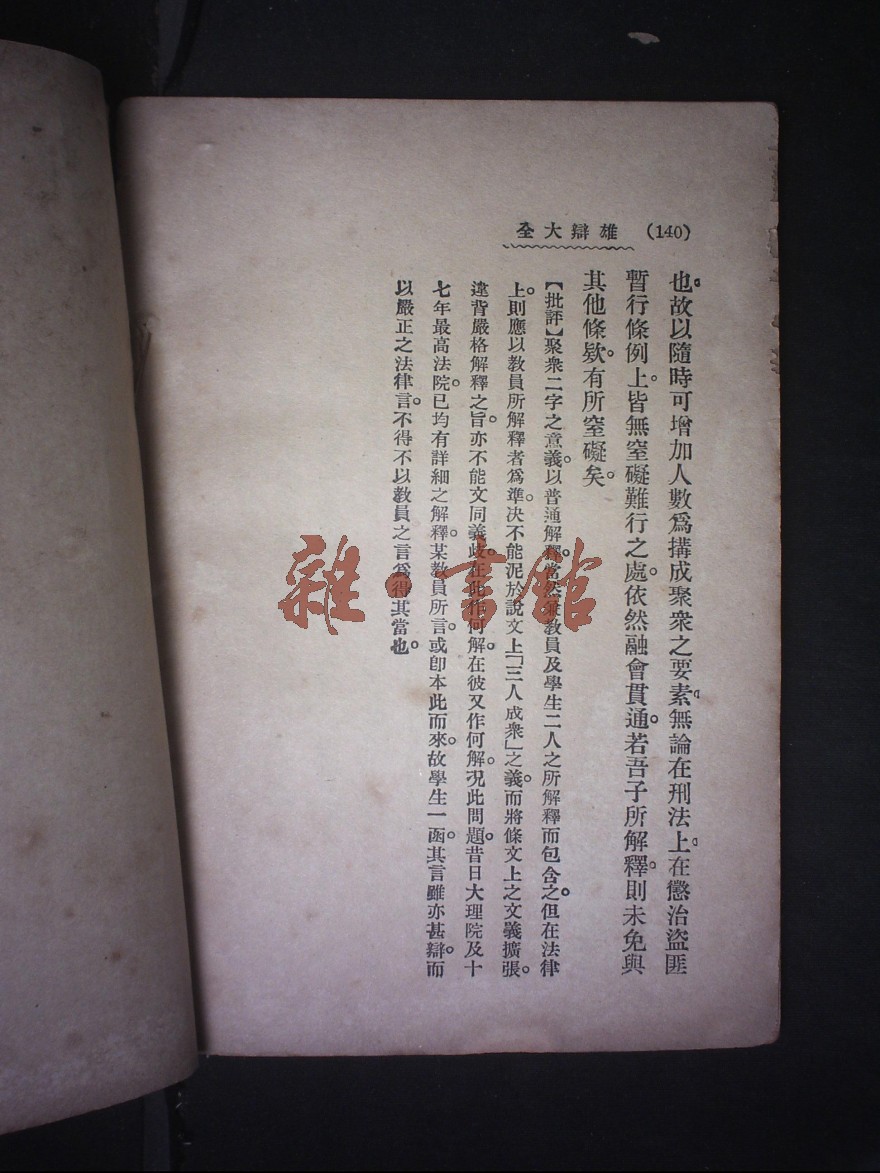 (140) 雄辯大全
也。故以隨時可增加人數爲搆成聚衆之要素。無論在刑法上。在懲治盜匪
暫行條例上。皆無窒礙難行之處。依然融會貫通。若吾子所解釋。則未免與
其他條欵。有所窒礙矣。
【批評】聚衆二字之意義。以普通解釋。當然兼教員及學生二人之所解釋而包含之。但在法律
上。則應以教員所解釋者爲準。決不能泥於說文上「三人成衆」之義。而將條文上之文義擴張。
違背嚴格解釋之旨。亦不能文同義歧。在此作何解。在彼又作何解。况此問題。昔日大理院及十
七年最高法院。已均有詳細之解釋。某教員所言。或卽本此而來。故學生一函。其言雖亦甚辯。而
以嚴正之法律言。不得不以教員之言爲得其當也。
雜·書館